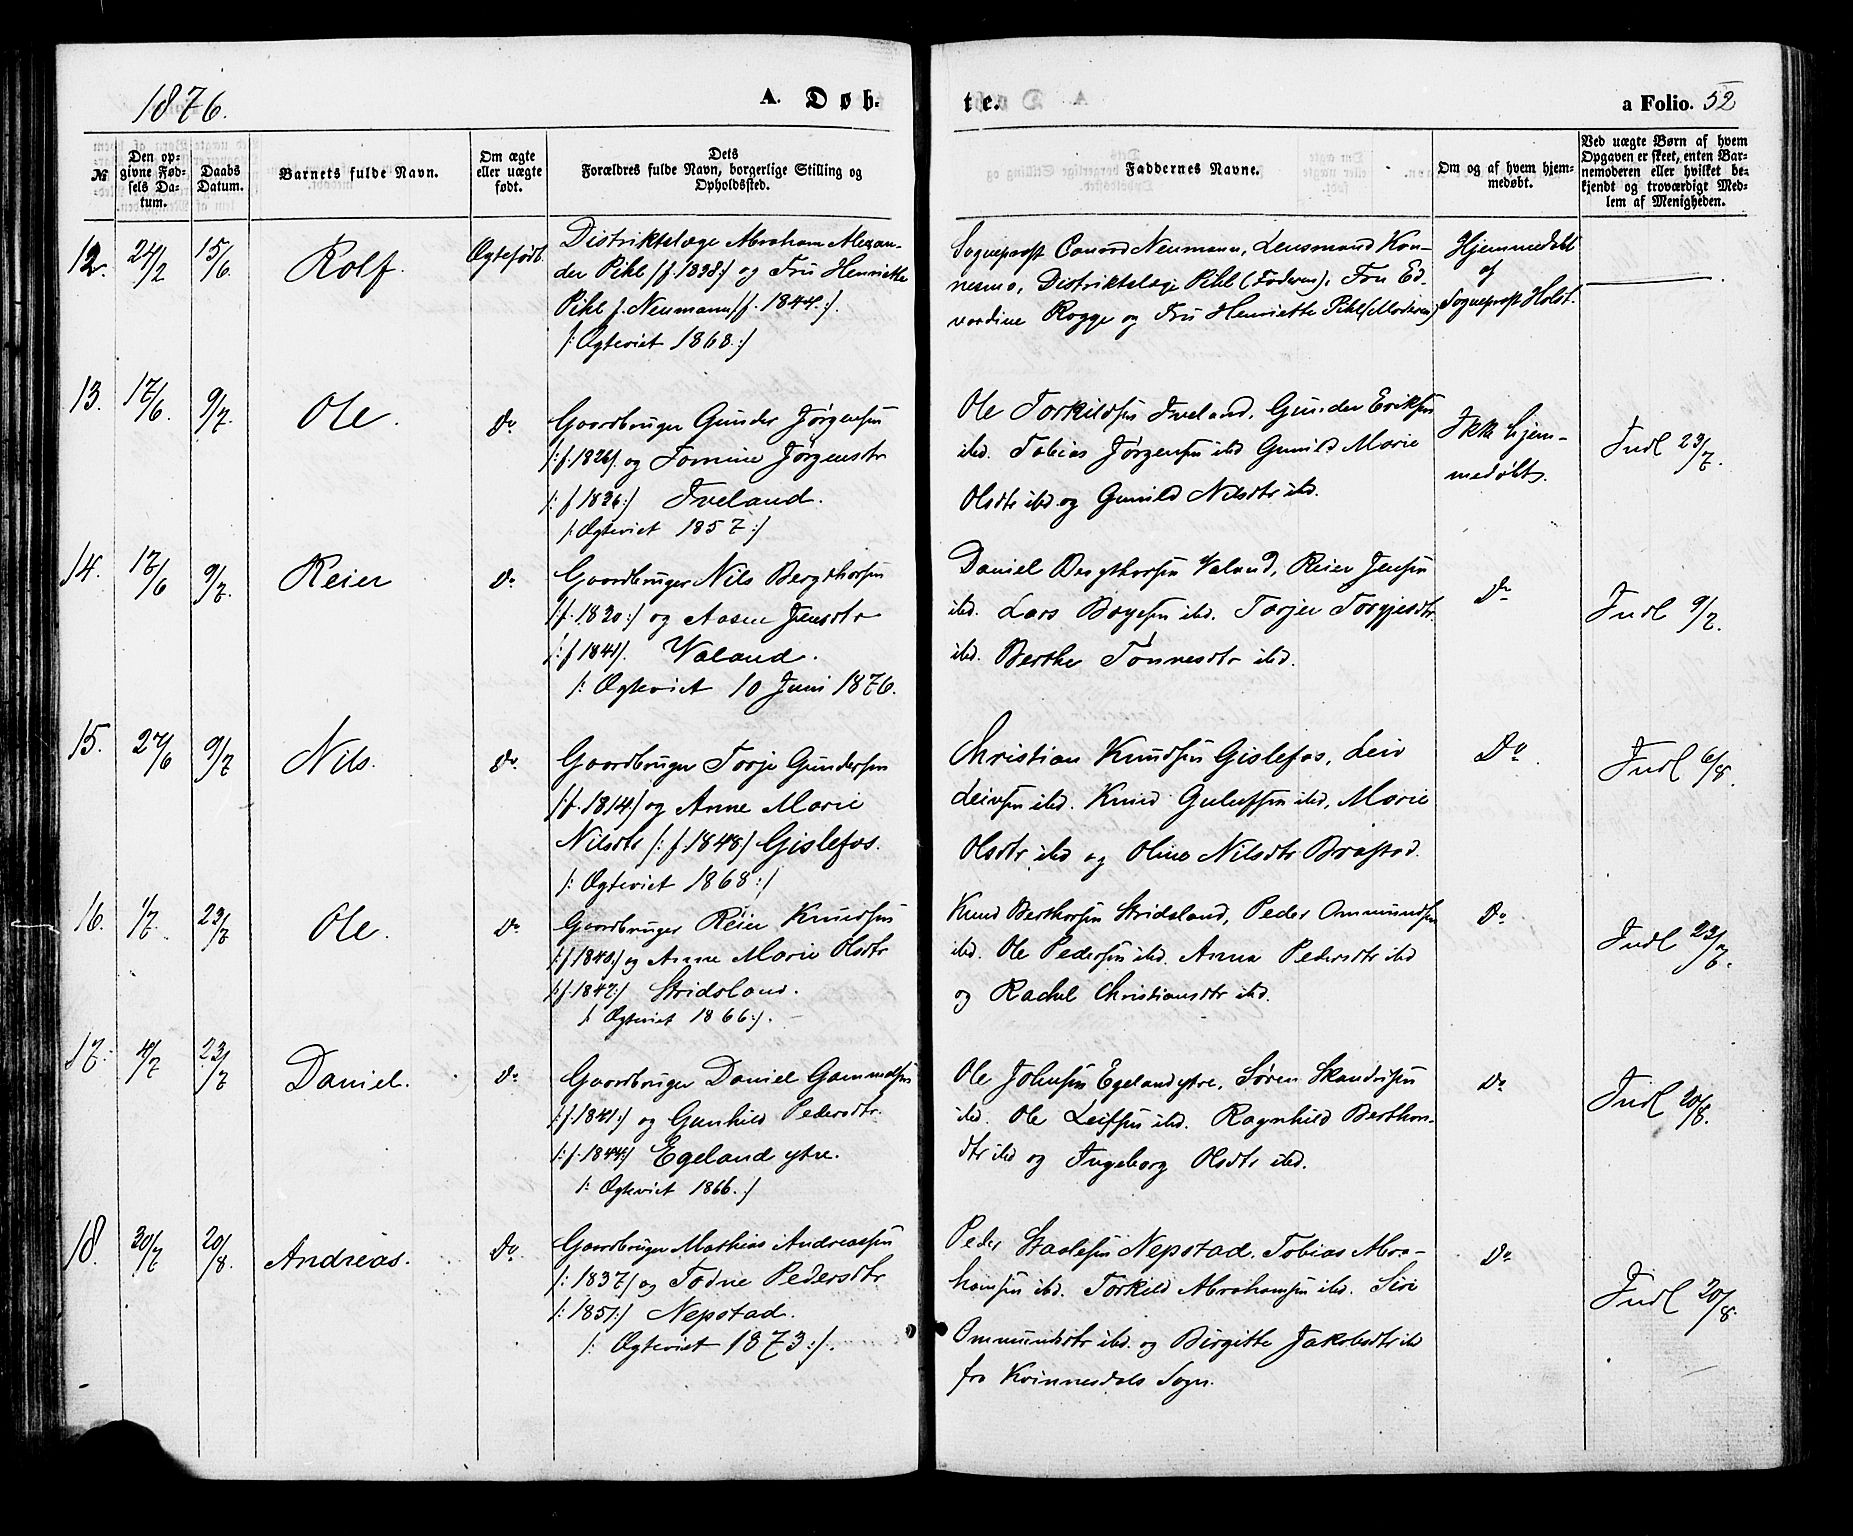 1876.
A. Døb-
te.
a Folio. 52
№
Den op-
givne Fød-
sels Da-
tum.
Daabs
Datum.
Barnets fulde Navn.
Om ægte
eller uægte
født.
Dets
Forældres fulde Navn, borgerlige Stilling og
Opholdssted.
Faddernes Navne.
Om og af hvem hjem-
medøbt.
Ved uægte Børn af hvem
Opgaven er skeet, enten Bar-
nemoderen eller hvilket be-
kjendt og troværdigt Med-
lem af Menigheden.
12. 24/2 15/6. Rolf. Ægtefødt.
Distriktslæge Abraham Alexan-
der Pihl /f. 1838:/ og Fru Henriette
Pihl f. Neumann /f. 1844:/.
/: Ægteviet 1868:/
Sogneprest Conrad Neumann, Lensmand Kon-
nesmo, Distriktslæge Pihl (Faderen), Fru Ed-
vardine Rogge og Fru Henriette Pihl (Moderen)
Hjemmedøbt
af
Sogneprest Holst.
13. 17/6. 9/7. Ole. Do
Gaardbruger Gunder Jørgensen
/:f. 1826/. og Tomine Jørgensdtr
/: f 1836:/ Tveland.
/: Ægteviet 1857:/
Ole Torkildsen Tveland, Gunder Eriksen
ibd. Tobias Jørgensen ibd Gunild Marie
Olsdtr ibd. og Gunild Nilsdtr ibd.
Ikke hjem-
medøbt.
Indl 23/7.
14. 17/6 9/7. Reier Do
Gaardbruger Nils Bergthorsen
/f. 1820:/ og Aasne Jensdtr
/: f 1841/. Valand.
/: Ægteviet 10 Juni 1876.
Daniel Bergthorsen Valand, Reier Jensen
ibd. Lars Bøyesen ibd. Torjer Torgjesdtr
ibd. Berthe Tønnesdtr ibd.
Do
Indl 9/7.
15. 27/6 9/7 Nils. Do.
Gaardbruger Torje Gundersen
/f. 1814:/ og Anne Marie
Nilsdtr /: f 1848/ Gislefos.
/: Ægteviet 1868:/
Christian Knudsen Gislefos, Leiv
Leivsen ibd. Knud Gulufsen ibd, Marie
Olsdtr ibd og Oline Nilsdtr Brastad.
Do.
Indl 6/8.
16. 1/7. 23/7 Ole. Do
Gaardbruger Reier Knudsen
/:f 1840:/ og Anne Marie Olsdtr
/:f. 1847:/ Stridsland.
/: Ægteviet 1866:/.
Knud Berthorsen Stridsland, Peder Ommundsen
ibd. Ole Pedersen ibd. Anna Pedersdtr ibd
og Rachel Christiansdtr ibd.
Do
Indl 23/7.
17. 4/7 23/7 Daniel. Do
Gaardbruger Daniel Gammelsen
/:f. 1841:/ og Gunhild Pedersdtr.
/:f. 1844:/ Egeland ytre.
/: Ægteviet 1866.:/
Ole Johnsen Egeland ytre, Søren Skandrisen
ibd. Ole Leifsen ibd. Ragnhild Berthors-
dtr ibd og Ingeborg Olsdtr ibd.
Do
Indl 20/8.
18. 30/7 20/8. Andreas. Do.
Gaardbruger Mathias Andreassen
/: 1837/ og Todne Pedersdtr
/: 1851:/ Nepstad.
/: Ægteviet 1873:/.
Peder Staalesen Nepstad. Tobias Abra-
hamsen ibd. Torkild Abrahamsen ibd. Siri
Ommundsdtr ibd. og Birgitte Jakobsdtr ibd
fra Kvinnesdals Sogn.
Do
Indl 20/8.